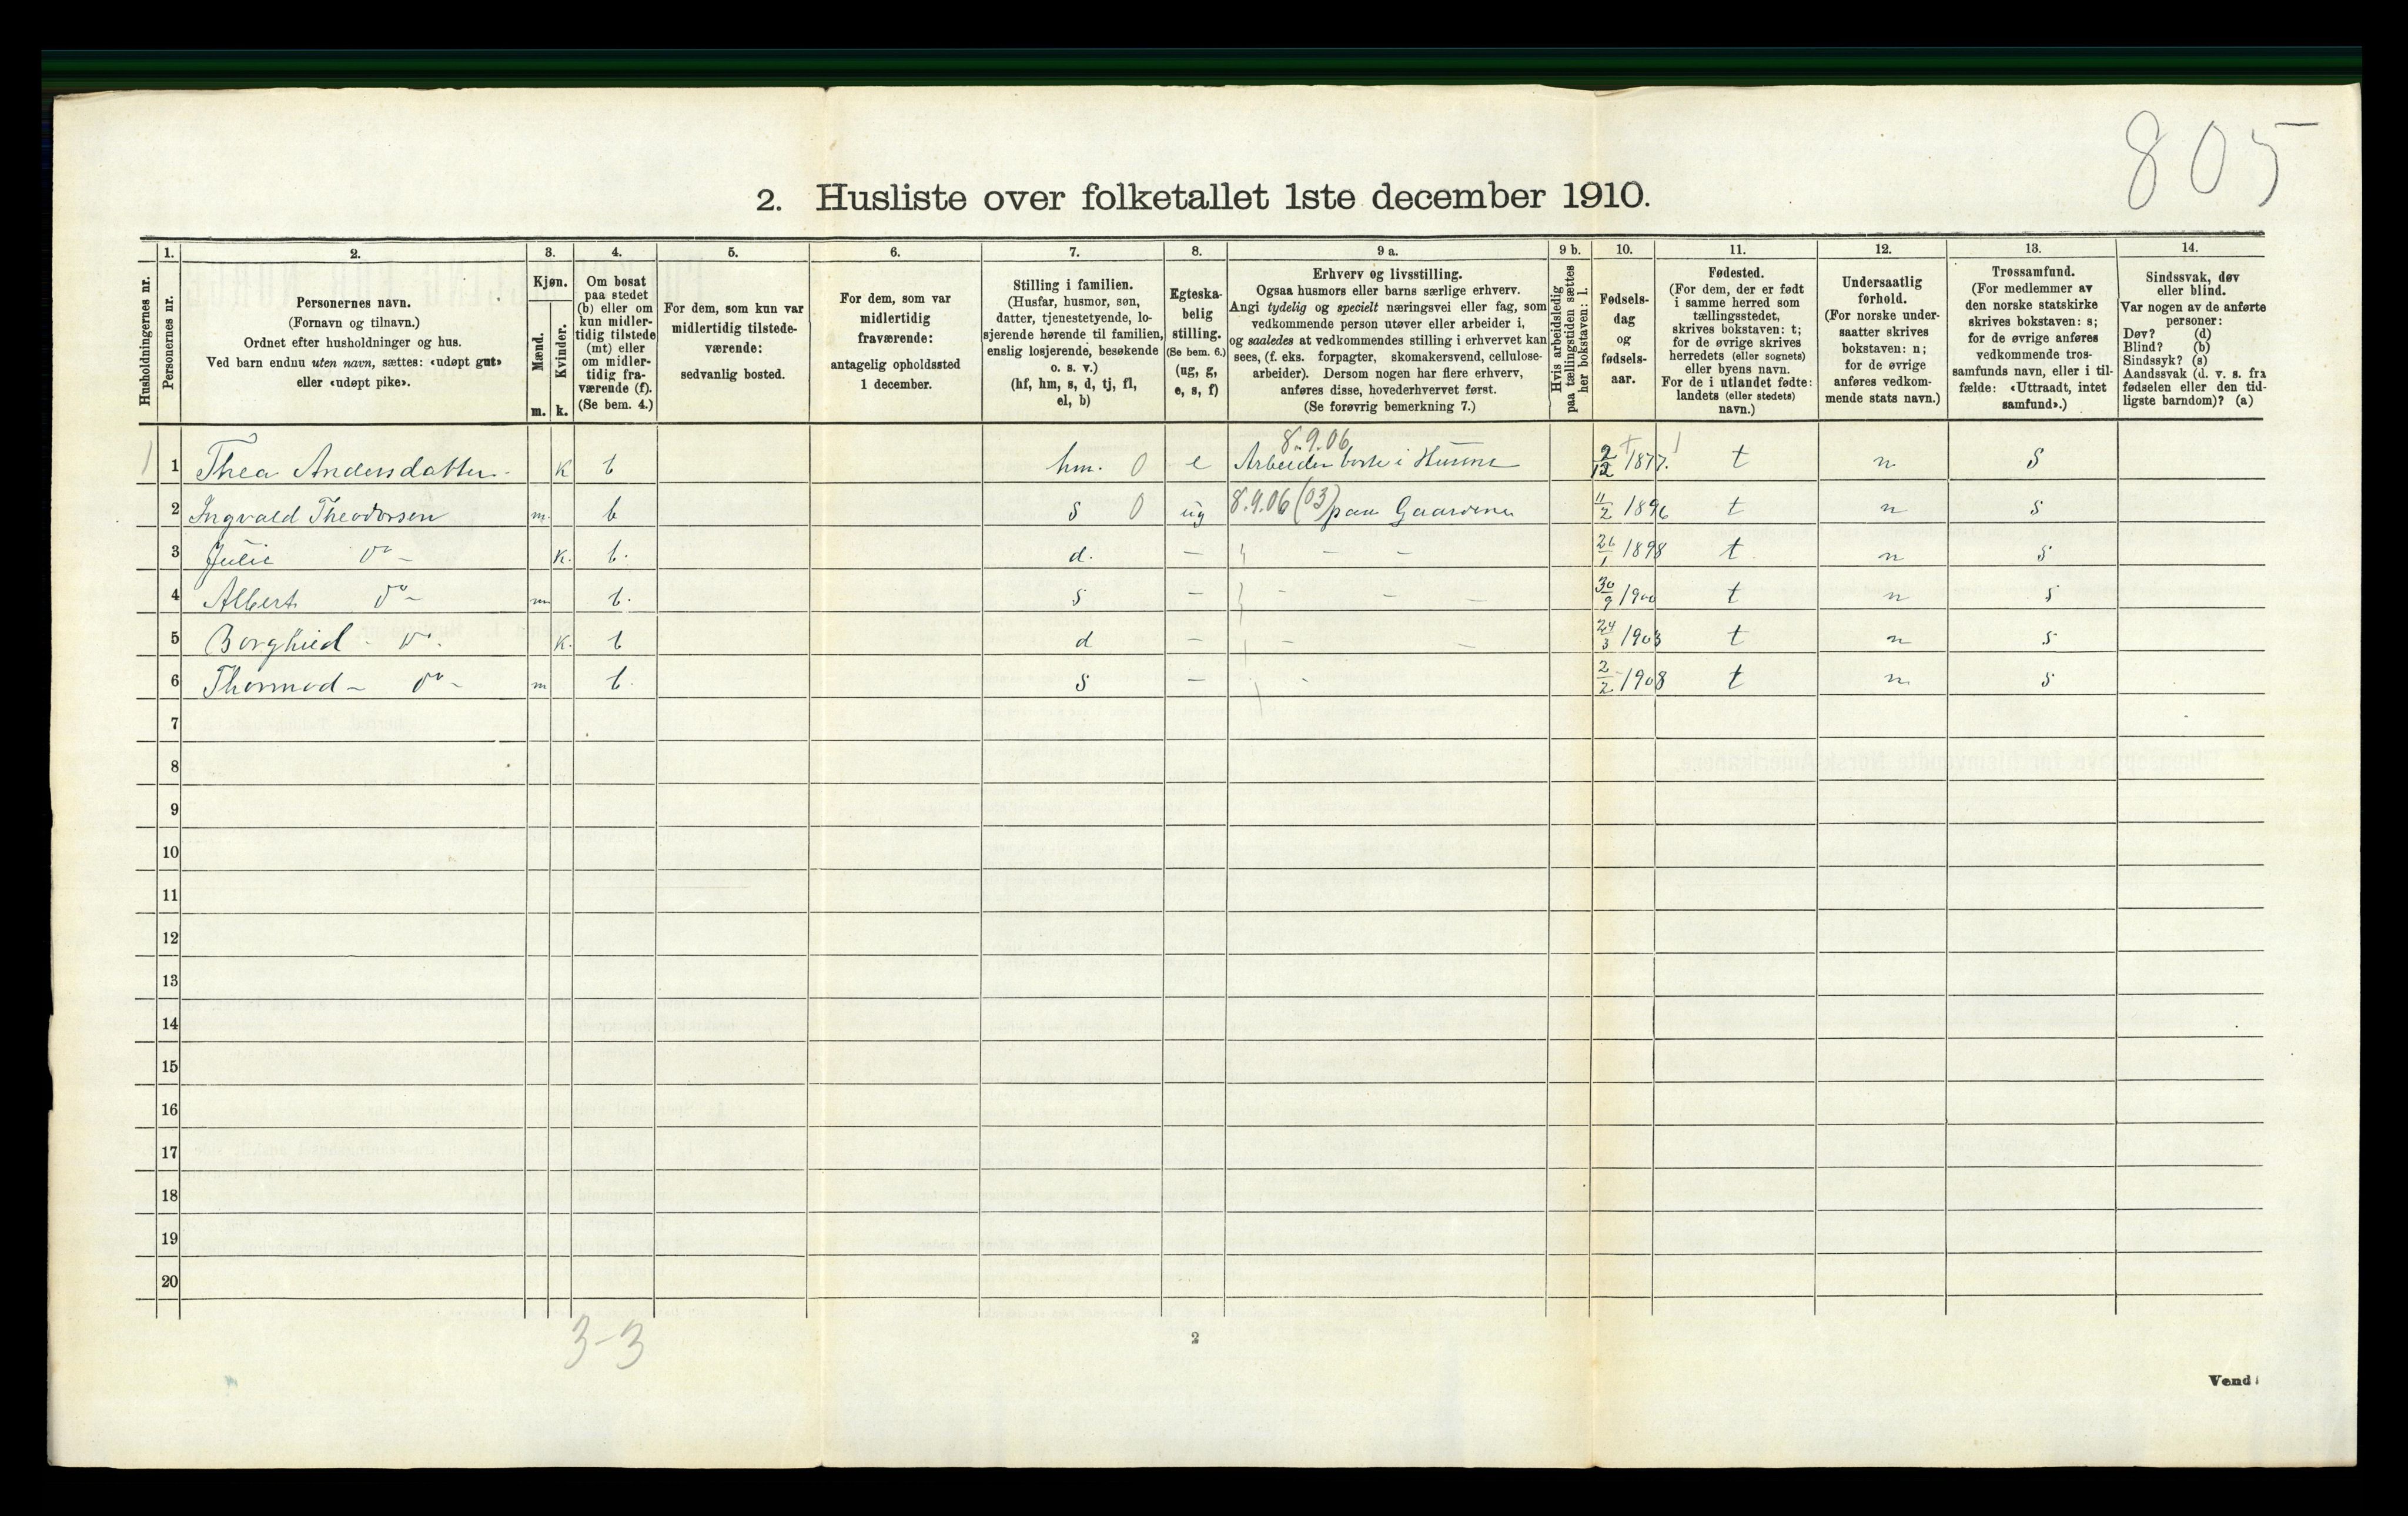 805
2. Husliste over folketallet 1ste december 1910.
Husholdningernes nr.
1.
Personernes nr.
2.
Personernes navn.
(Fornavn og tilnavn.)
Ordnet efter husholdninger og hus.
Ved barn endnu uten navn, sættes: «udøpt gut»
eller «udøpt pike».
3.
Kjøn.
Mænd.
Kvinder.
m. k.
4.
Om bosat
paa stedet
(b) eller om
kun midler-
tidig tilstede
(mt) eller
om midler-
tidig fra-
værende (f).
(Se bem. 4.)
5.
For dem, som kun var
midlertidig tilstede-
værende:
sedvanlig bosted.
6.
For dem, som var
midlertidig
fraværende:
antagelig opholdssted
1 december.
7.
Stilling i familien.
(Husfar, husmor, søn,
datter, tjenestetyende, lo-
sjerende hørende til familien,
enslig losjerende, besøkende
o. s. v.)
(hf, hm, s, d, tj, fl,
el, b)
8.
Egteska-
belig
stilling.
(Se bem. 6.)
(ug, g,
e, s, f)
9 a.
Erhverv og livsstilling.
Ogsaa husmors eller barns særlige erhverv.
Angi tydelig og specielt næringsvei eller fag, som
vedkommende person utøver eller arbeider i,
og saaledes at vedkommendes stilling i erhvervet kan
sees, (f. eks. forpagter, skomakersvend, cellulose-
arbeider). Dersom nogen har flere erhverv,
anføres disse, hovederhvervet først.
(Se forøvrig bemerkning 7.)
9 b.
Hvis arbeidsledig
paa tællingstiden sættes
her bokstaven: l.
10.
Fødsels-
dag
og
fødsels-
aar.
11.
Fødested.
(For dem, der er født
i samme herred som
tællingsstedet,
skrives bokstaven: t;
for de øvrige skrives
herredets (eller sognets)
eller byens navn.
For de i utlandet fødte:
landets (eller stedets)
navn.)
12.
Undersaatlig
forhold.
(For norske under-
saatter skrives
bokstaven: n;
for de øvrige
anføres vedkom-
mende stats navn.)
13.
Trossamfund.
(For medlemmer av
den norske statskirke
skrives bokstaven: s;
for de øvrige anføres
vedkommende tros-
samfunds navn, eller i til-
fælde: «Uttraadt, intet
samfund».)
14.
Sindssvak, døv
eller blind.
Var nogen av de anførte
personer:
Døv? (d)
Blind? (b)
Sindssyk? (s)
Aandssvak (d. v. s. fra
fødselen eller den tid-
ligste barndom)? (a)
8.9.06
1 1 Thea Andersdatter K b hm. 0 e Arbeider borte i Husene 2/12 1877. t n s
2 Ingvald Theodorsen m b s 0 ug 8.9.06 (03) paa Gaardene 11/2 1896 t n s
3 Julie do - K. b. d. - - - 26/1 1898 t n s
4 Albert do - m b. s - - - - 30/9 1900 t n s
5 Borghild - do. K. b d - - - 24/3 1903 t n s
6 Thormod - do - m b. s - - 2/2 1908 t n s
7
8
9
10
11
12
13
14
15
16
17
18
19
20
3-3
2
Vend!